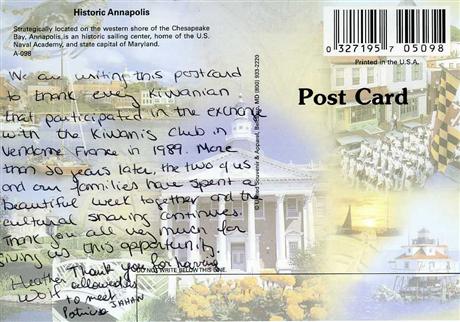 Historic Annapolis
Strategically located on the western shore of the Chesapeake
Bay, Annapolis, is an historic sailing center, home of the U.S.
Naval Academy, and state capital of Maryland.
A-098
0 327195 7 05098
Printed in the U.S.A.
Post Card
We are writing this postcard
to thank every Kiwanian
that participated in the exchange
with the Kiwanis club in
Vendome France in 1989. More
than 30 years later, the two of us
and our families have spent a
beautiful week together and the
cultural sharing continues.
Thank you all very much for
giving us this opportunity.
Heather
Thank you for having
allowed us
to meet
Patricia JAHAN
DO NOT WRITE BELOW THIS LINE.
Souvenir & Apparel, MD (800) 933-2220